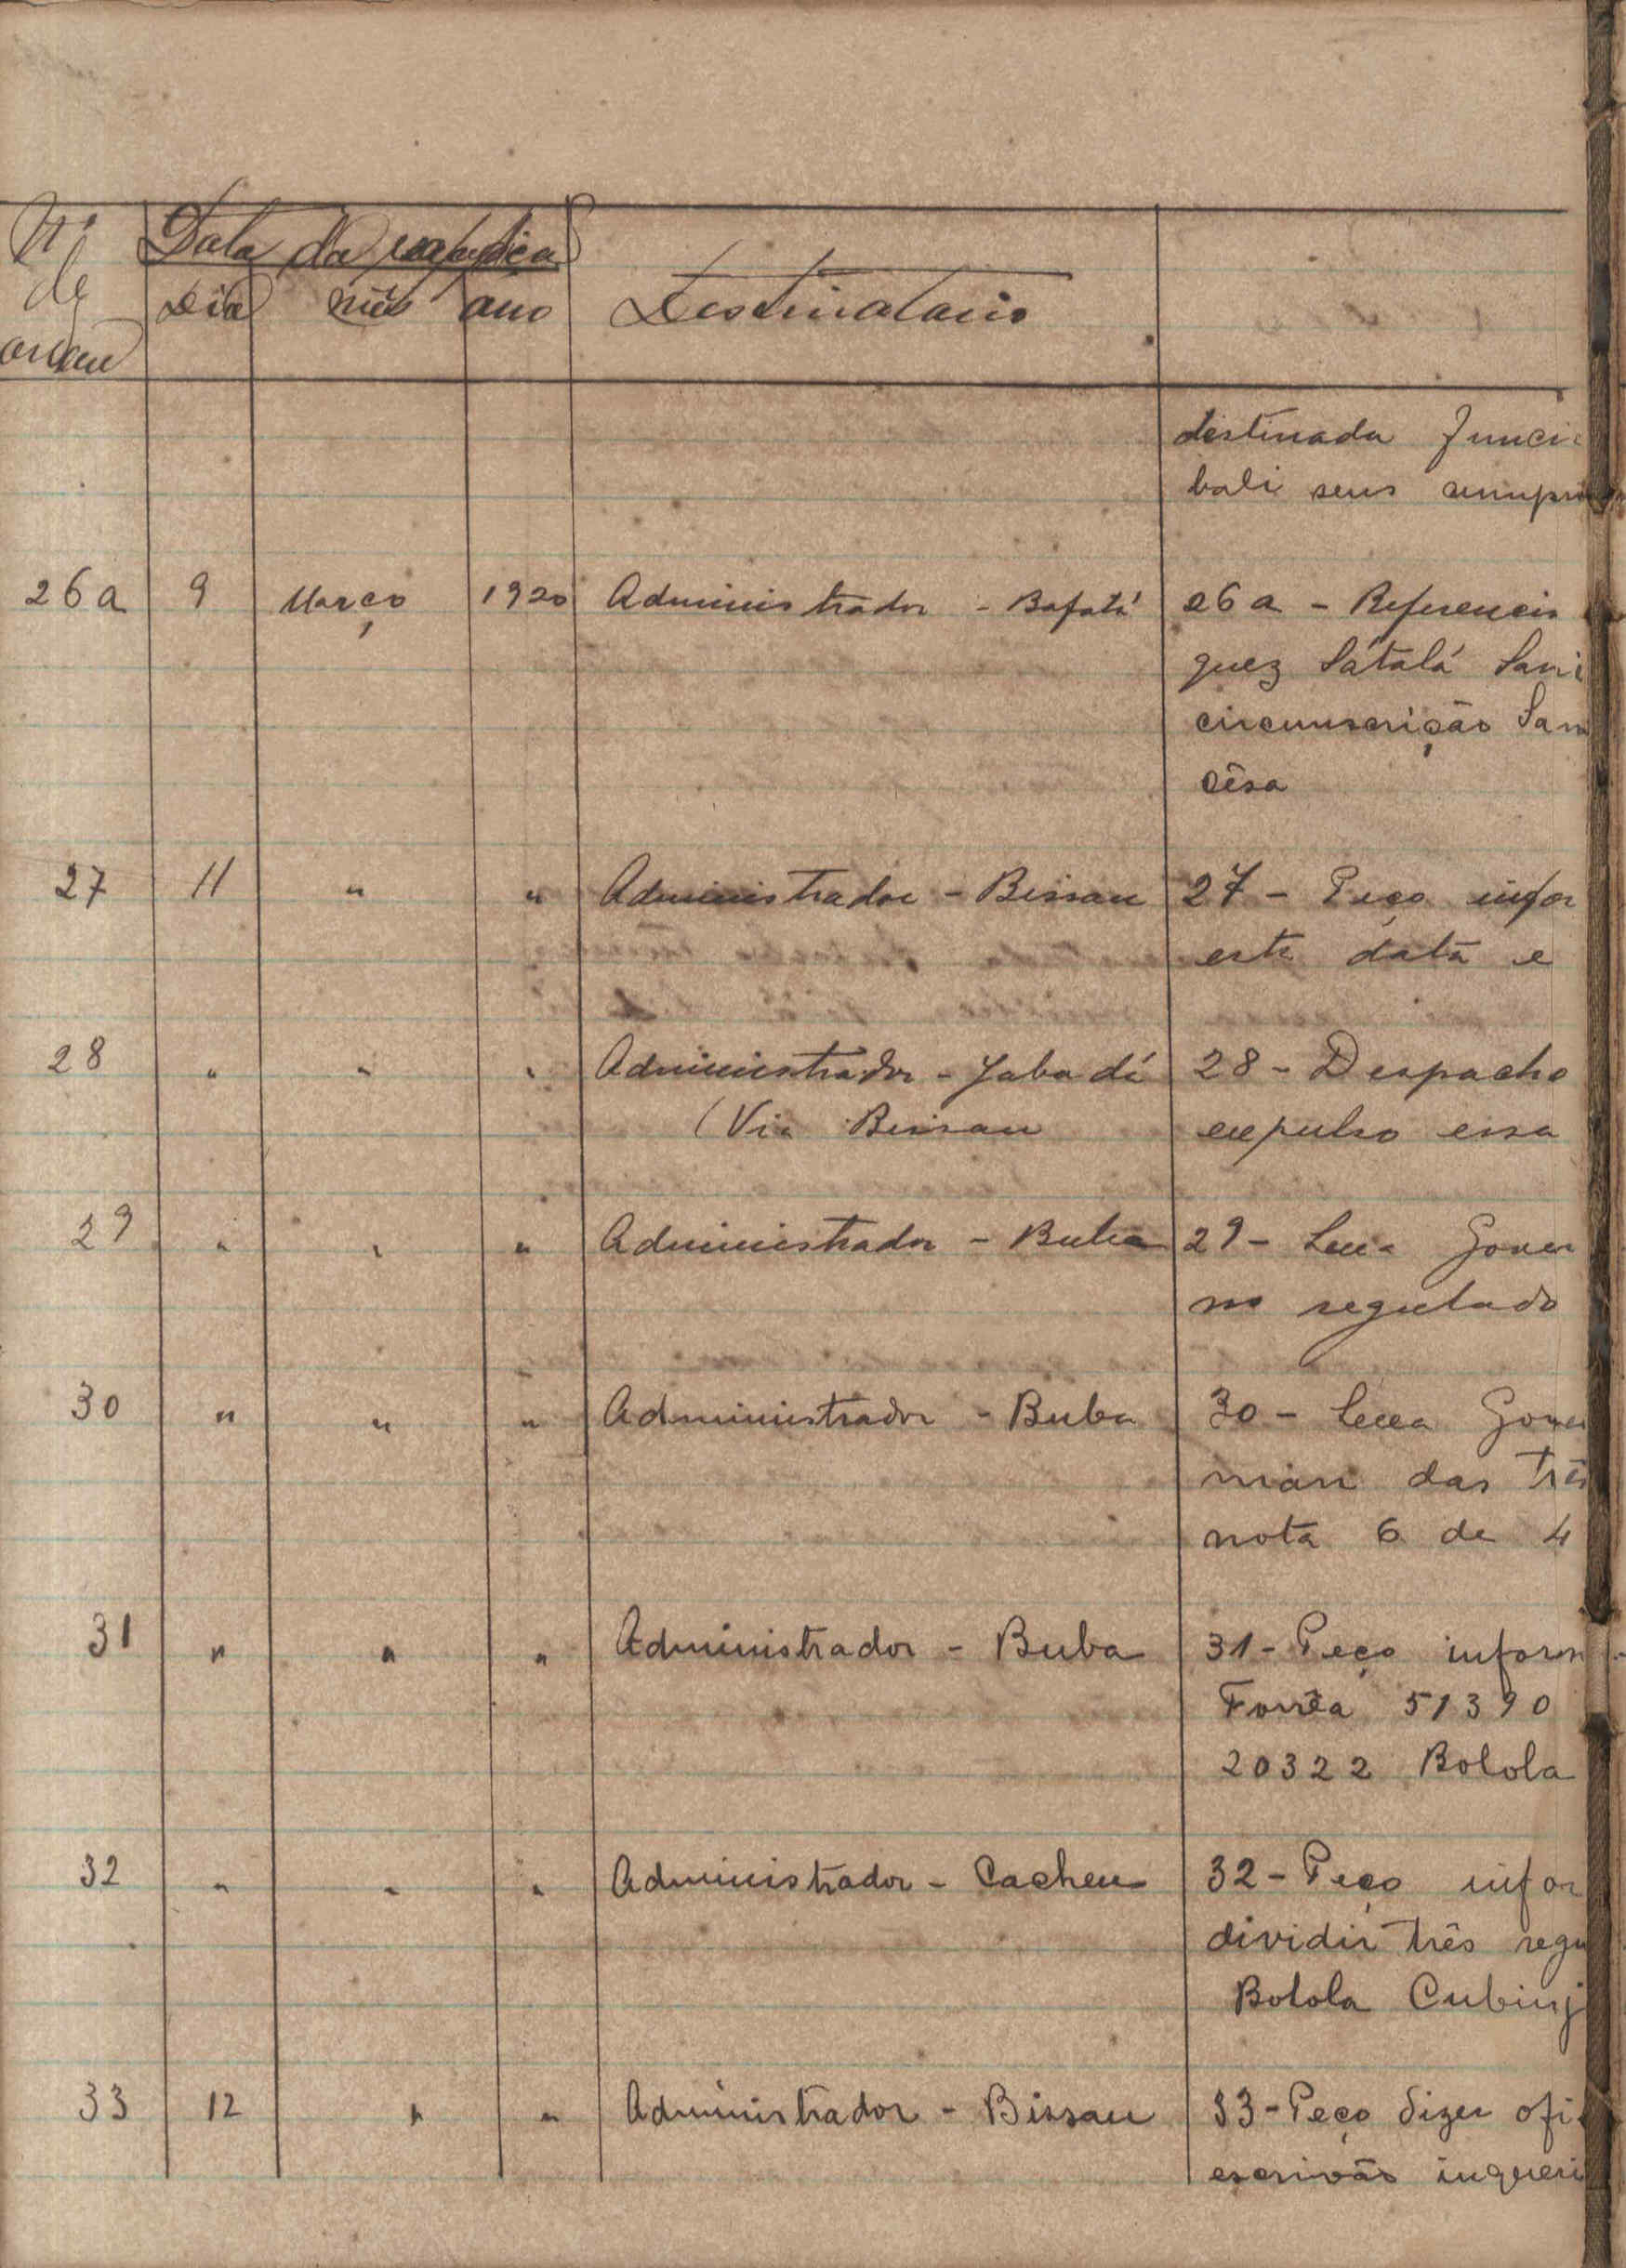 Nº Data da
de Dia mês ano Destinatario
ordem
destinada
bali seus
26a 9 Março 1920 Administrador - Bafatá 26a - Referencia
guez Sátalá
circunscrição
cêsa
27 11 " " Administrador - Bissau 27 - Peço infor
esta data e
28 " " " Administrador - Jabadá 28 - Despacho
(Via Bissau expulso essa
29 " " " Administrador - Buba 29 - Gover
no regulado
30 " " " Administrador - Buba 30 - Gover
das três
nota 6 de 4
31 " " " Administrador - Buba 31 - Peço inform
Forrêa 51390
20322 Bolola
32 " " " Administrador - Cacheu 32 - Peço infor
dividir três regu
Bolola Cubinj
33 12 " " Administrador - Bissau 33 - Peço dizer ofi
escrivão inqueri